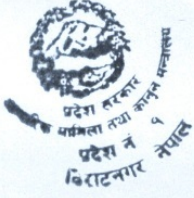 प्रदेश सरकार
मामिला तथा कानून मन्त्रालय
प्रदेश नं १
बिराटनगर नेपाल